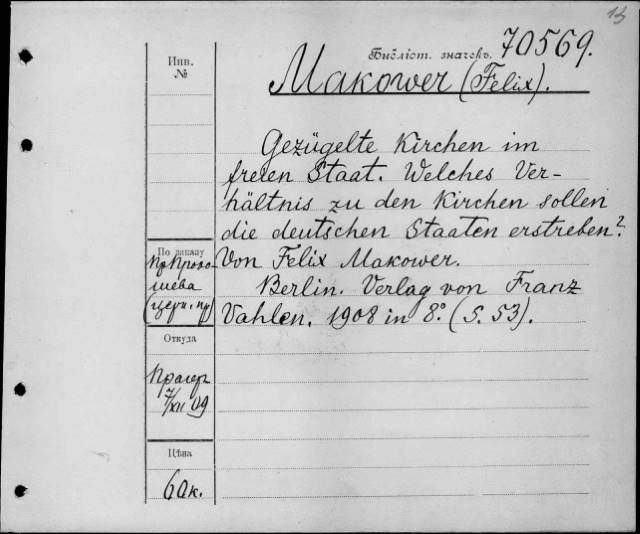 13
Библіот. значекъ. 70569.
Инв.
№
Makower (Felix).
Gezügelte Kirchen im
freien Staat. Welches Ver-
hältnis zu den Kirchen sollen
die deutschen Staaten erstreben?
Von Felix Makower.
Berlin. Verlag von Franz
Vahlen. 1908 in 8º. (S. 53).
По заказу
шева
Откуда
Прагеръ
7/XII 09
Цѣна
60к.